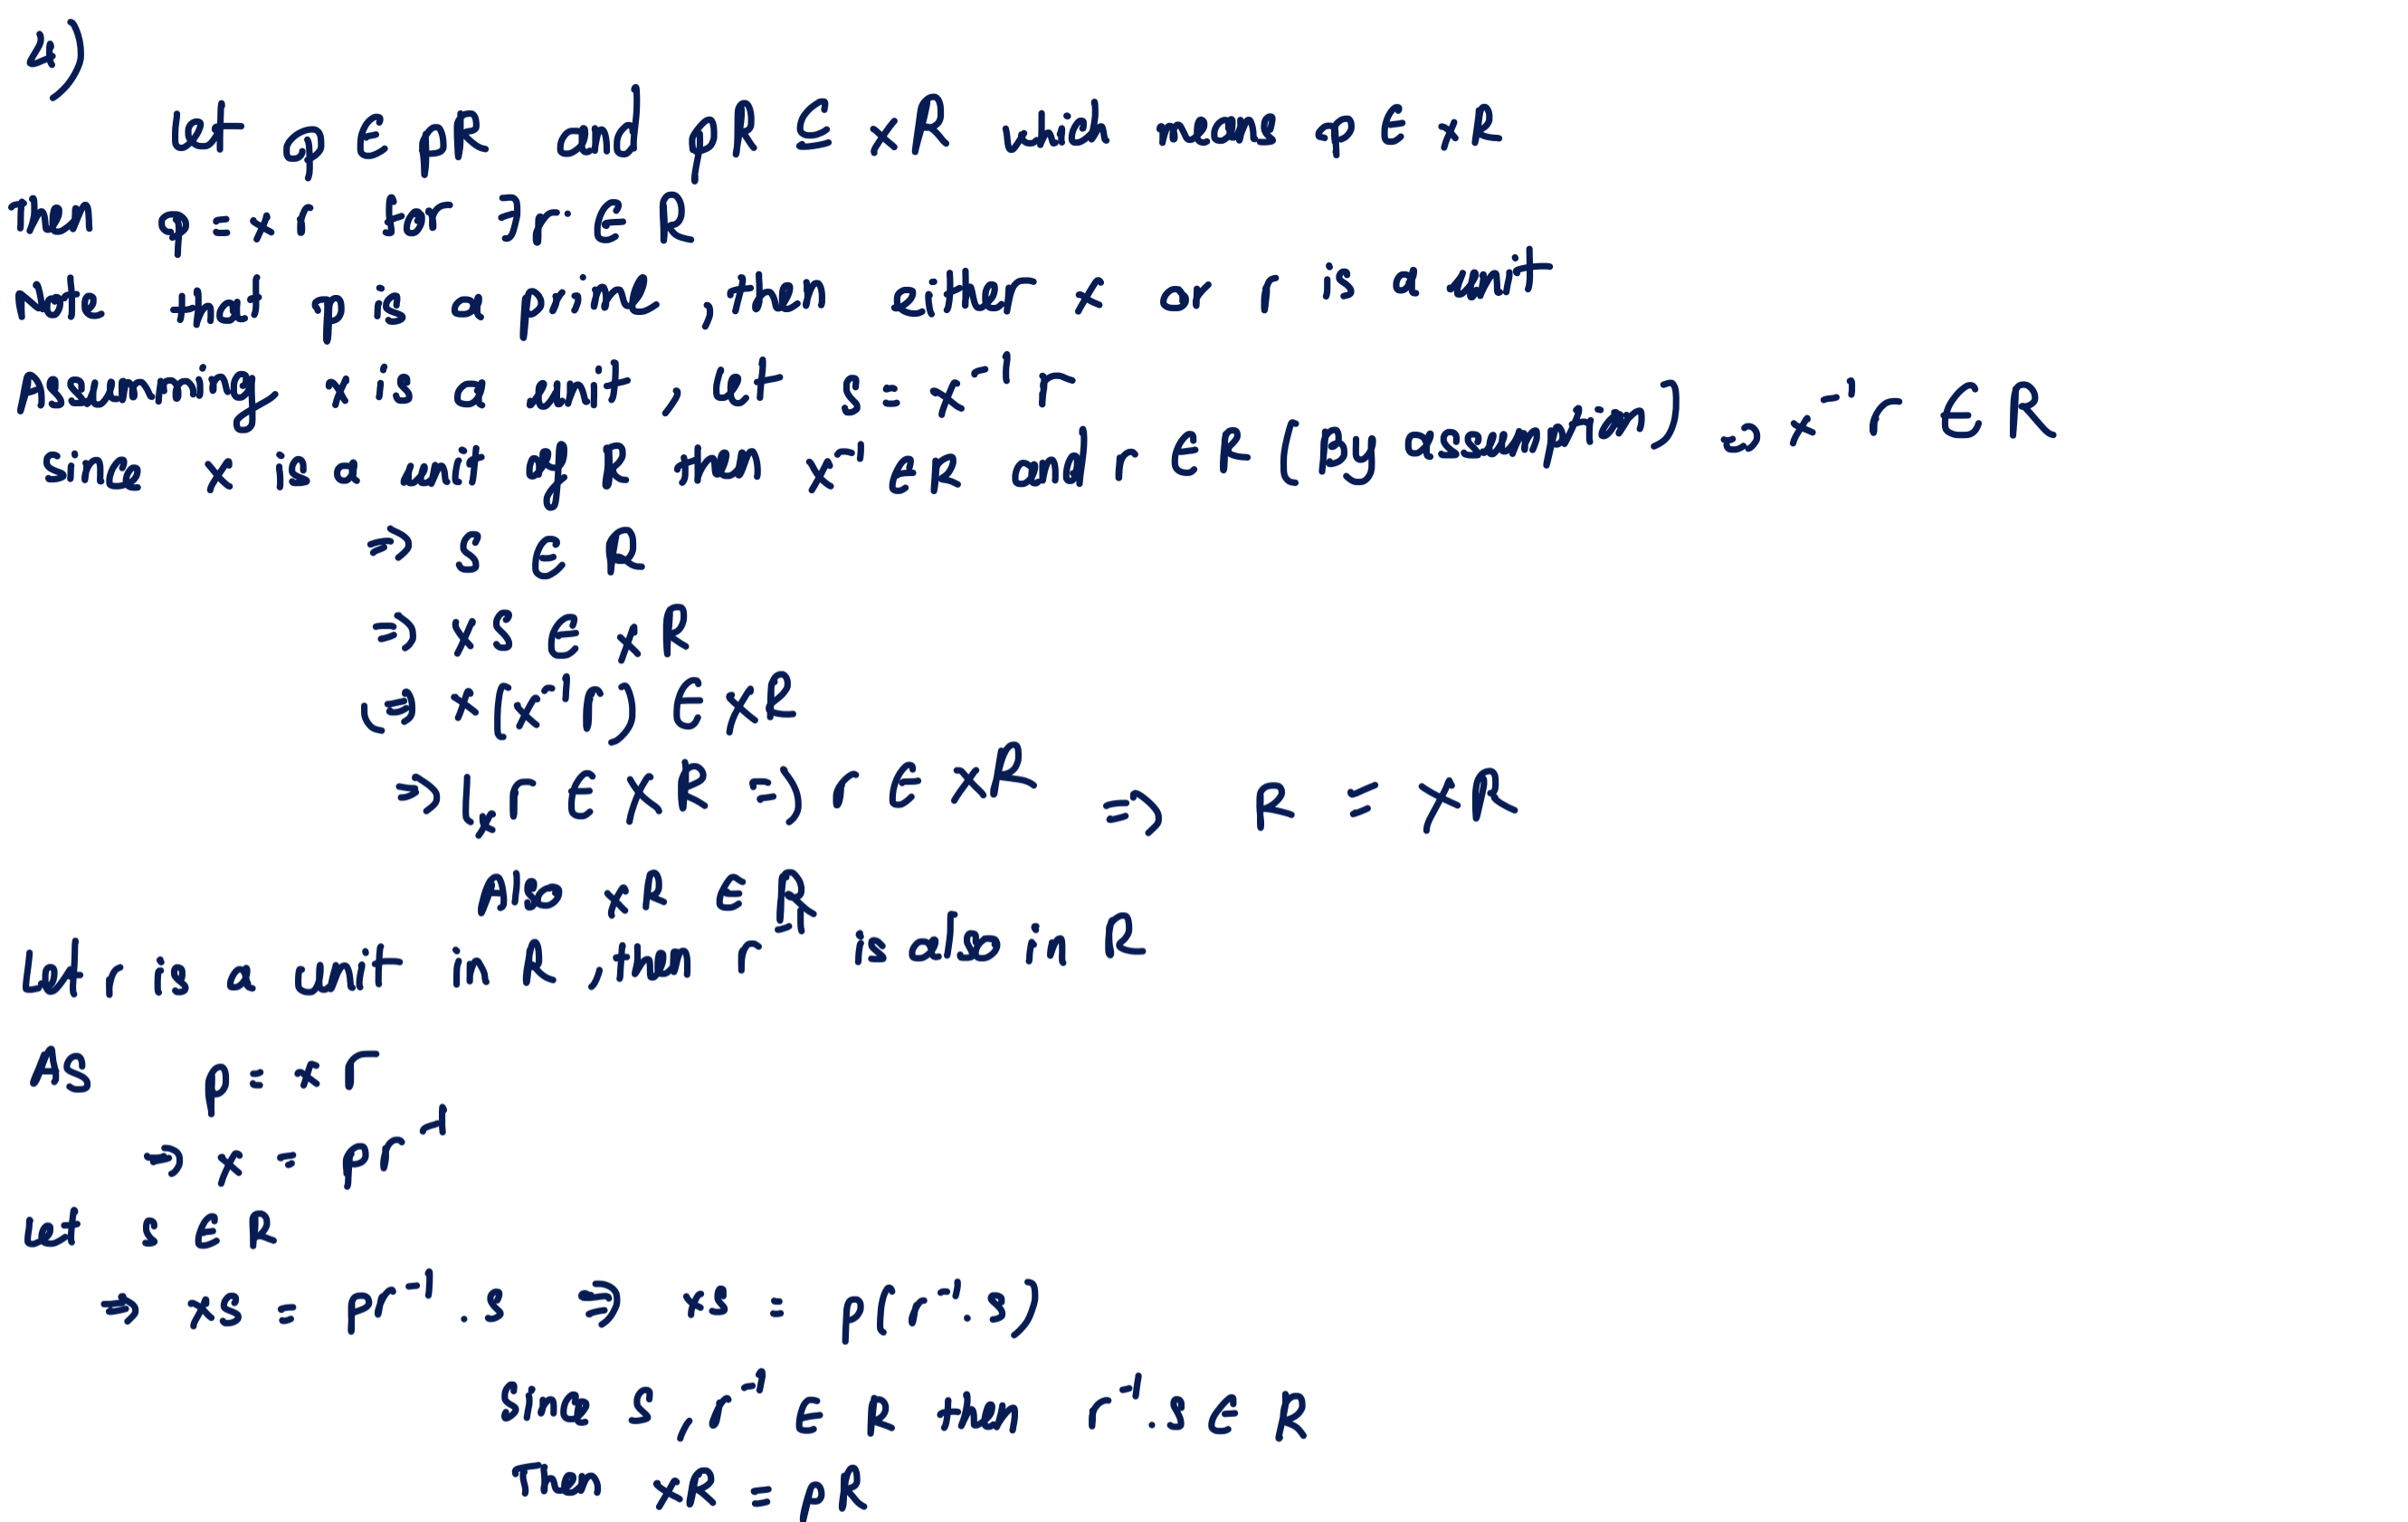 4)
Let p ∈ pR and pR ∈ xR which means p ∈ xR
Then p = x r for ∃ r ∈ R
Note that p is a prime, then either x or r is a unit
Assuming x is a unit, let s = x⁻¹ r
since x is a unit of R then x⁻¹ ∈ R and r ∈ R (By assumption) so x⁻¹ r ∈ R
⇒ s ∈ R
⇒ xs ∈ xR
⇒ x(x⁻¹r) ∈ xR
⇒ 1ₓr ∈ xR ⇒ r ∈ xR ⇒ R = xR
Also xR ∈ R
Let r is a unit in R, then r⁻¹ is also in R
As p = x r
⇒ x = pr⁻¹
Let s ∈ R
⇒ xs = pr⁻¹ . s ⇒ xs = p(r⁻¹. s)
Since s, r⁻¹ ∈ R then r⁻¹. s ∈ R
Then xR = pR